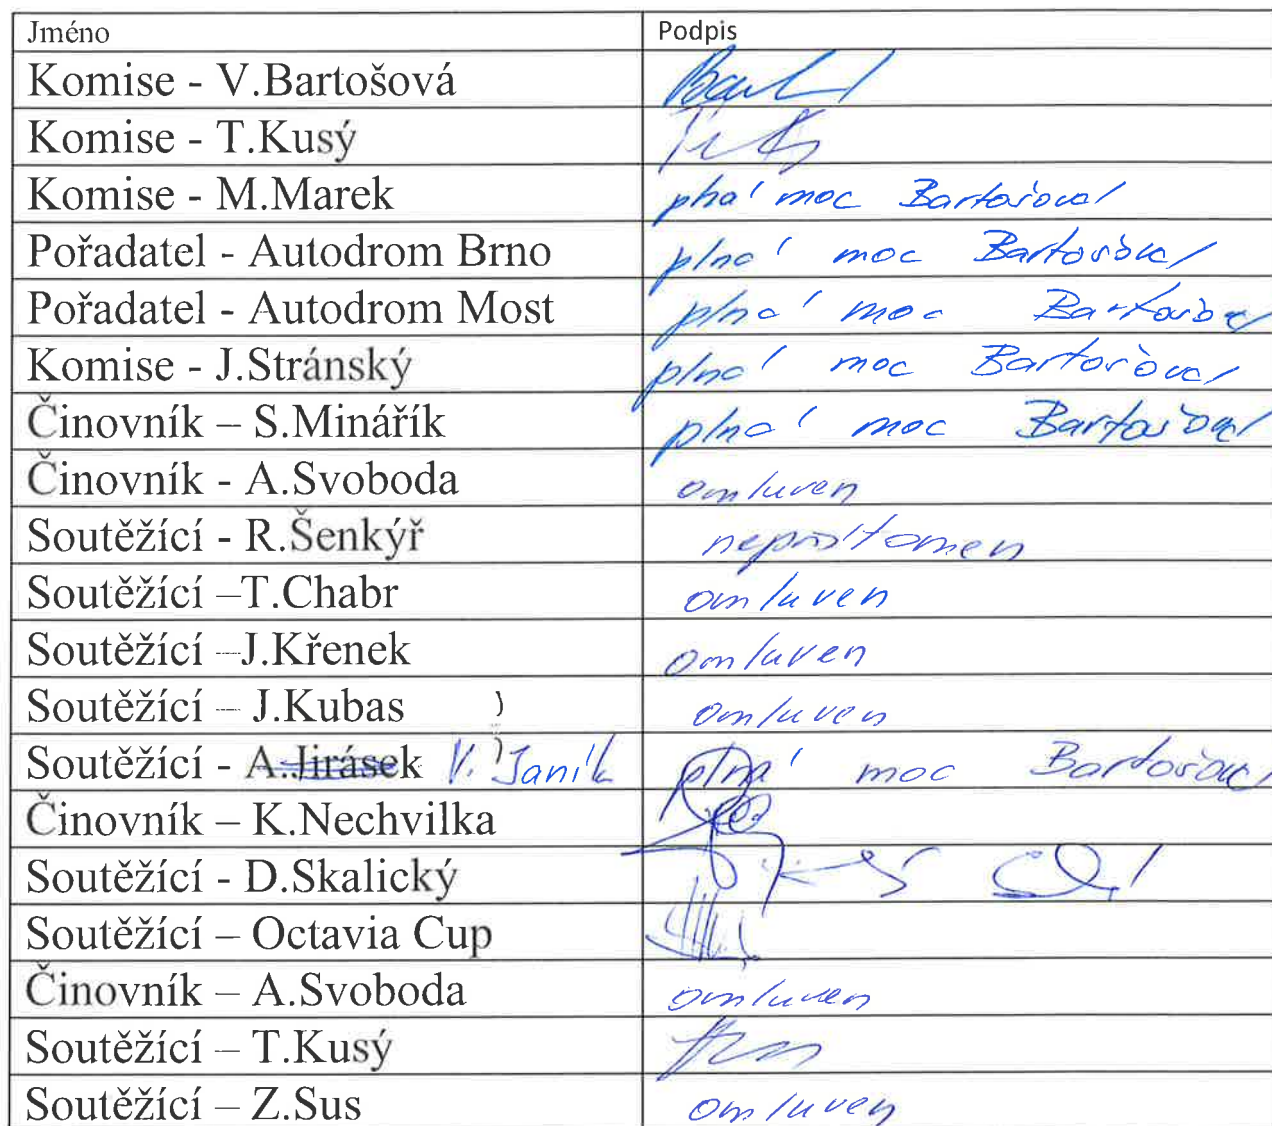 Jméno Podpis
Komise - V.Bartošová
Komise - T.Kusý
Komise - M.Marek plná moc Bartošová
Pořadatel - Autodrom Brno plná moc Bartošová
Pořadatel - Autodrom Most plná moc Bartošová
Komise - J.Stránský plná moc Bartošová
Činovník – S.Minářík plná moc Bartošová
Činovník - A.Svoboda omluven
Soutěžící - R.Šenkýř nepřítomen
Soutěžící –T.Chabr omluven
Soutěžící –J.Křenek omluven
Soutěžící – J.Kubas omluven
Soutěžící - A.Jirásek V. Janík plná moc Bartošová
Činovník – K.Nechvilka
Soutěžící - D.Skalický
Soutěžící – Octavia Cup
Činovník – A.Svoboda omluven
Soutěžící – T.Kusý
Soutěžící – Z.Sus omluven